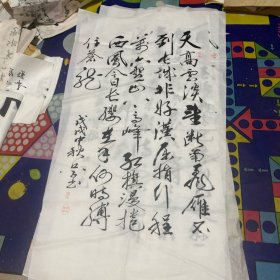 天高雲淡望断南飛雁不
到长城非好漢屈指行程
二萬六盘山上高峰红旗漫捲
西風今日长缨在手何时缚
住苍龍
戊戌中秋